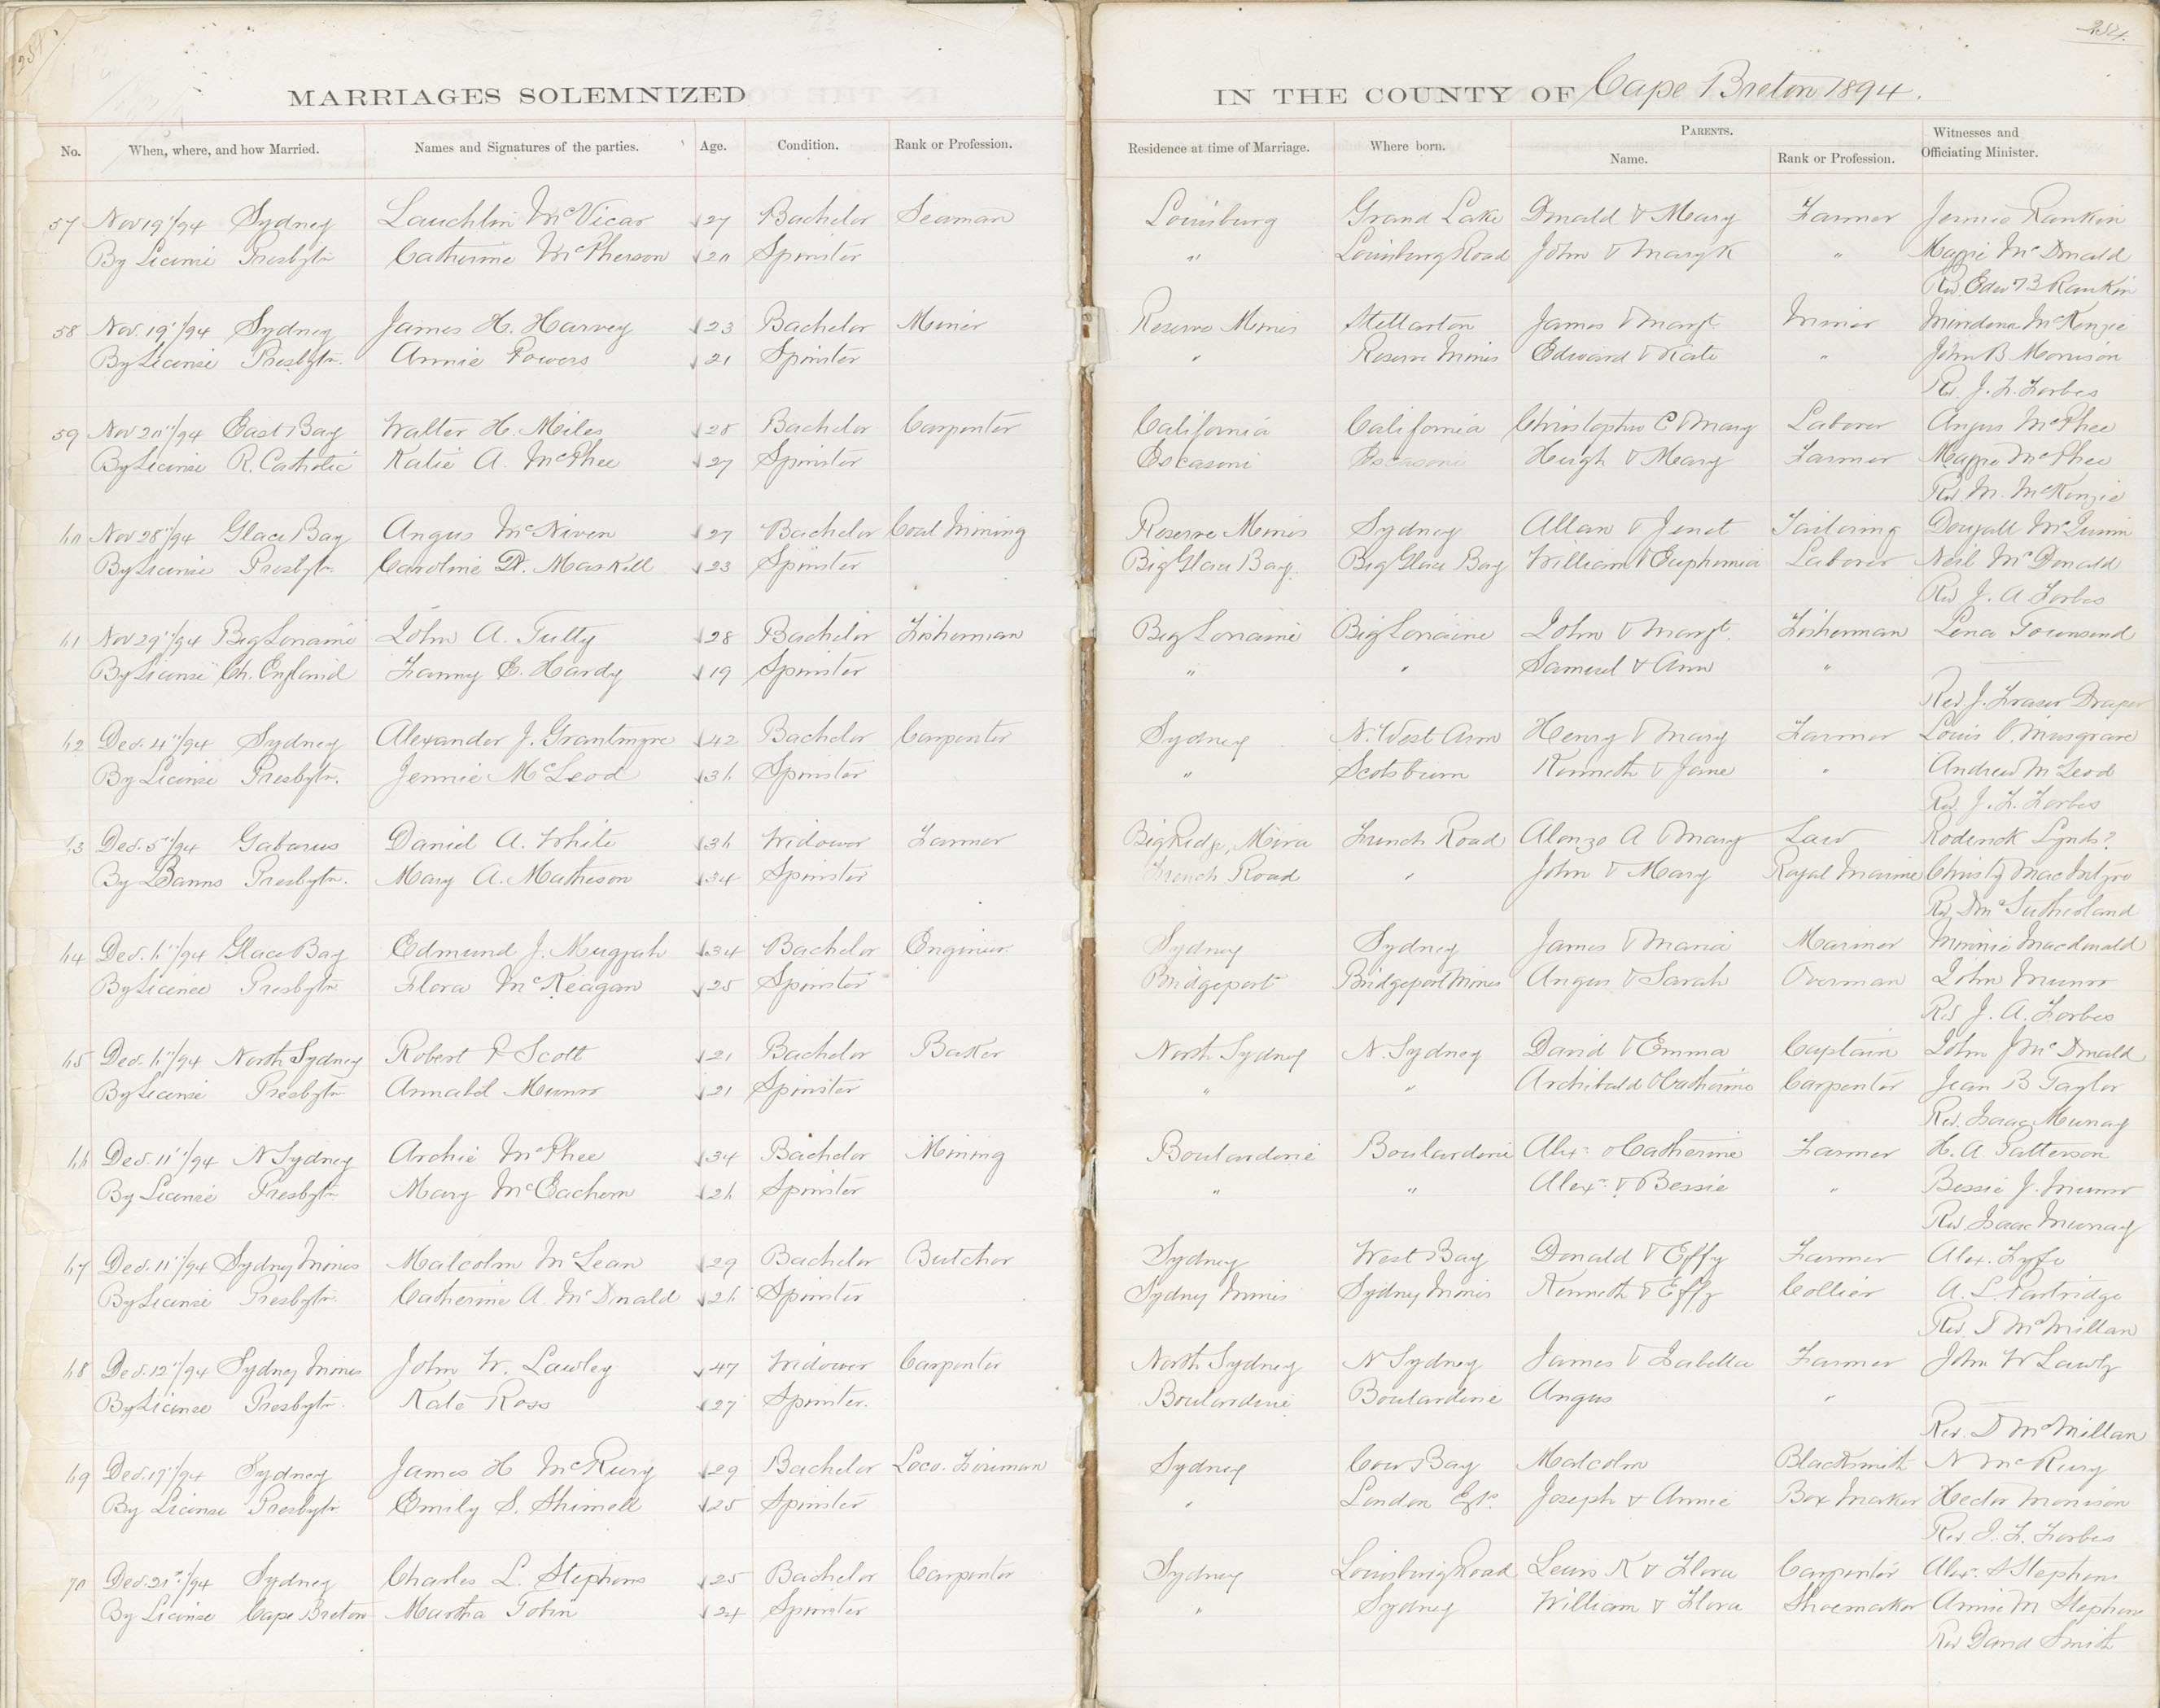 284.
284.
MARRIAGES SOLEMNIZED IN THE COUNTY OF Cape Breton 1894.
No. When, where, and how Married. Names and Signatures of the parties. Age. Condition. Rank or Profession. Residence at time of Marriage. Where born. PARENTS. Name. Rank or Profession. Witnesses and Officiating Minister.
57 Nov 19"/94 Sydney Lauchlin McVicar 27 Bachelor Seaman Louisburg Grand Lake Donald & Mary Farmer Jennie Rankin
By License Presbytn Catherine McPherson 20 Spinster " Louisburg Road John & Mary K " Maggie McDonald
Rev. Edw B Rankin
58 Nov. 19"/94 Sydney James H. Harvey 23 Bachelor Miner Reserve Mines Stellarton James & Margt. Miner McKenzie
By License Presbytn. Annie Powers 21 Spinster " Reserve Mines Edward & Kate " John B Morrison
Rev. J. F. Forbes
59 Nov 20"/94 East Bay Walter H. Miles 28 Bachelor Carpenter California California Christopher C & Mary Laborer Angus McPhee
By License R. Catholic Katie A. McPhee 27 Spinster Escasoni Escasoni Hugh & Mary Farmer Maggie McPhee
Rev. M. McKenzie
60 Nov 28"/94 Glace Bay Angus McNiven 27 Bachelor Coal Mining Reserve Mines Sydney Allan & Jenet Tailoring Dougall McQuinn
By License Presbytn. Caroline D. MasKill 23 Spinster Big Glace Bay. Big Glace Bay William & Euphemia Laborer Neil McDonald
Rev J. A Forbes
61 Nov 29"/94 Big Lorraine John A. Tutty 28 Bachelor Fisherman Big Lorraine Big Lorraine John & Margt. Fisherman Lena Townsend
By License Ch. England Fanny E. Hardy 19 Spinster " " Samuel & Ann "
Rev. J. Fraser Draper
62 Dec. 4"/94 Sydney Alexander J. Grantmyre 42 Bachelor Carpenter Sydney N. West Arm Henry & Mary Farmer Louis C. Musgrave
By License Presbytn. Jennie McLeod 36 Spinster " Scotsburn Kenneth & Jane " Andrew McLeod
Rev. J. F. Forbes
63 Dec. 5"/94 Gabarus Daniel A. White 36 Widower Farmer Big Ridge, Mira French Road Alonzo A & Mary Law Roderick Lynds?
By Banns Presbytn. Mary A. Matheson 34 Spinster French Road " John & Mary Royal Marine Christy MacIntyre
Rev. Dm Sutherland
64 Dec. 6"/94 Glace Bay Edmund J. Mugguh 34 Bachelor Engineer Sydney Sydney James & Maria Mariner Minnie Macdonald
By Licence Presbytn Flora McKeagan 25 Spinster Bridgeport Bridgeport Mines Angus & Sarah Overman John Munro
Rev J. A. Forbes
65 Dec. 6"/94 North Sydney Robert P Scott 21 Bachelor Baker North Sydney N. Sydney David & Emma Captain John J McDonald
By License Presbytn Annabel Munro 21 Spinster " " Archibald & Catherine Carpenter Jean B Taylor
Rev. Isaac Murray
66 Dec. 11"/94 N Sydney Archie McPhee 34 Bachelor Mining Boularderie Boularderie Alexr & Catherine Farmer H. A Patterson
By License Presbytn Mary McEachern 26 Spinster " " Alexr. & Bessie " Bessie J. Munro
Rev. Isaac Murray
67 Dec. 11"/94 Sydney Mines Malcolm McLean 29 Bachelor Butcher Sydney West Bay Donald & Effy Farmer Alex. Fyfe
By License Presbytn. Catherine A. McDonald 26 Spinster Sydney Mines Sydney Mines Kenneth & Effy Collier A. L. Partridge
Rev. D McMillan
68 Dec. 12"/94 Sydney Mines John W. Lawley 47 Widower Carpenter North Sydney N Sydney James & Isabella Farmer John W Lawly
By License Presbytn. Kate Ross 27 Spinster. Boularderie Boularderie Angus "
Rev. D McMillan
69 Dec. 19"/94 Sydney James H McRury 29 Bachelor Loco. Fireman Sydney Cow Bay Malcolm Blacksmith N McRury
By License Presbytn Emily S. Shimell 25 Spinster " London Joseph & Annie Box Maker Hector Morrison
Rev. J. F. Forbes
70 Dec. 21st/94 Sydney Charles L. Stephens 25 Bachelor Carpenter Sydney Louisburg Road Lewis K & Flora Carpenter Alexr. S Stephens
By License Cape Breton Martha Tobin 24 Spinster " Sydney William & Flora Shoemaker Annie M Stephens
Rev David Smith